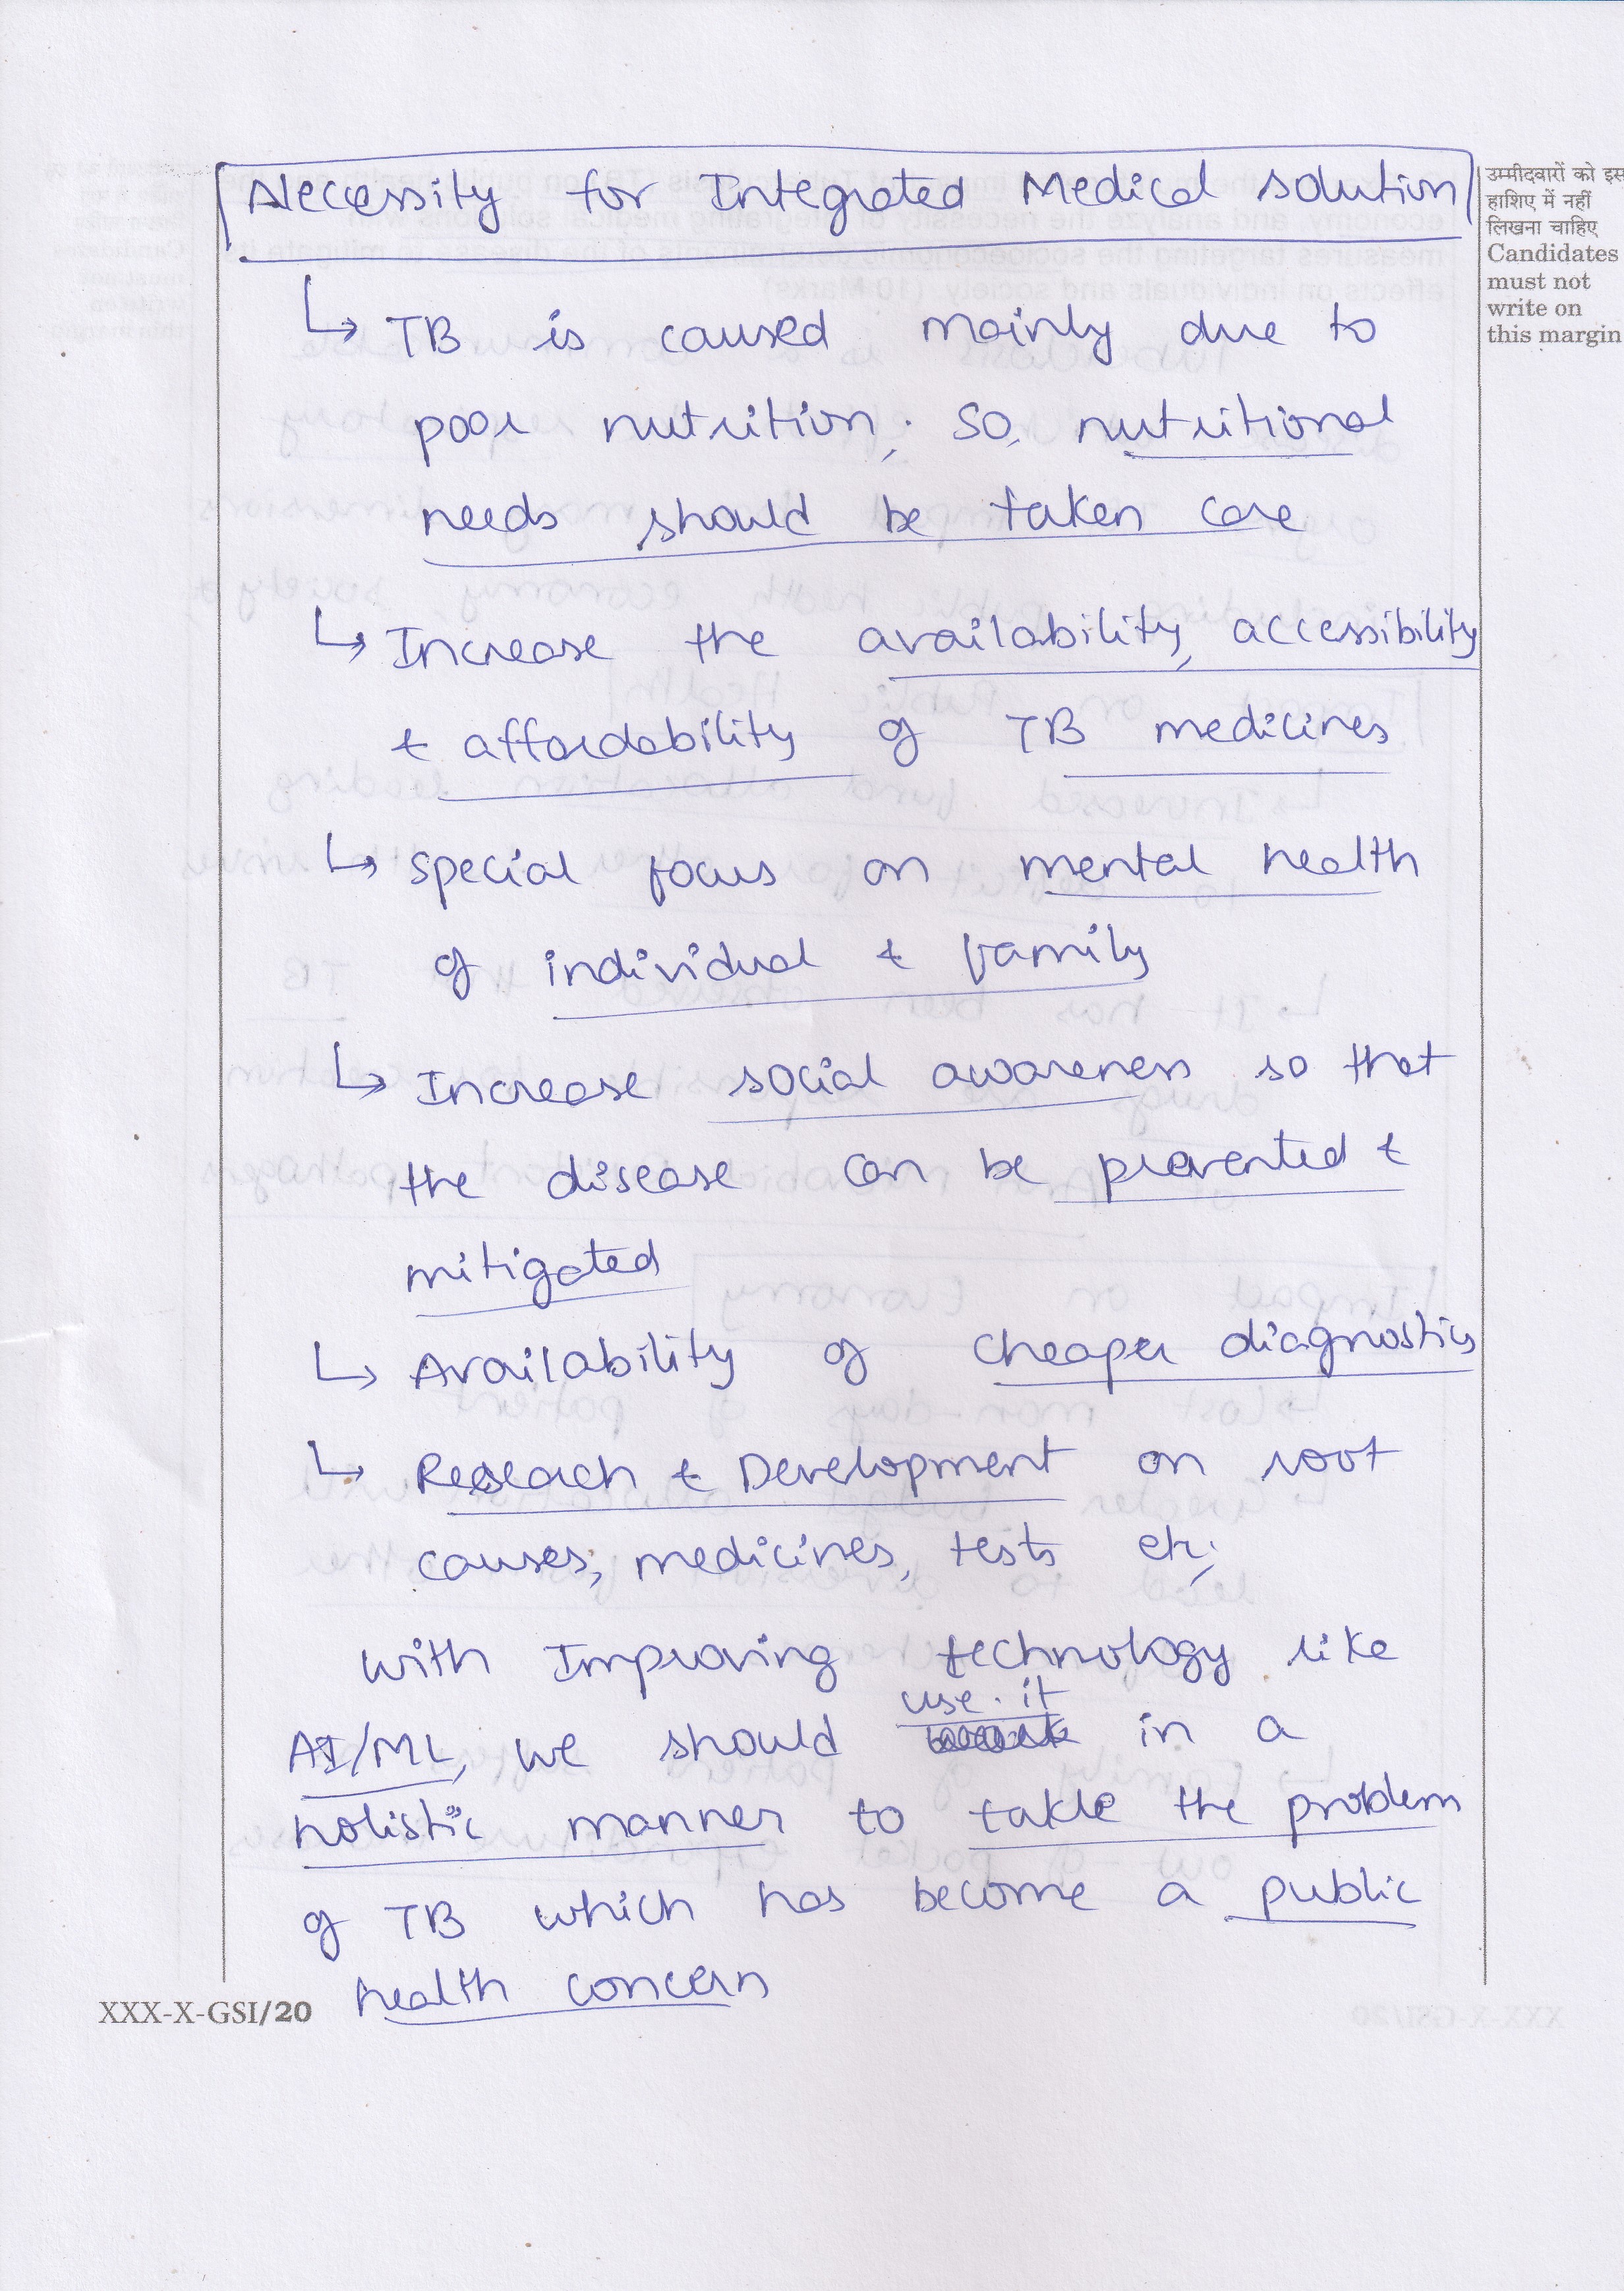 Necessity for Integrated Medical solution
उम्मीदवारों को इस
हाशिए में नहीं
लिखना चाहिए
Candidates
must not
write on
this margin
↳ TB is caused mainly due to
poor nutrition; so, nutritional
needs should be taken care
↳ Increase the availability, accessibility
& affordability of TB medicines
↳ special focus on mental health
of individual & family
↳ Increase social awareness so that
the disease can be prevented &
mitigated
↳ Availability of cheaper diagnostics
↳ Research & Development on root
causes, medicines, tests etc;
with Improving technology like
use it
AI/ML, we should in a
holistic manner to takle the problem
of TB which has become a public
health concern
XXX-X-GSI/20